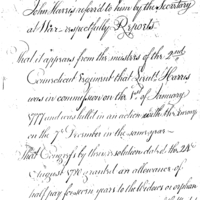 John Harris referred to him by the Secretary
at War respectfully Reports
That it appears from the musters of the 2nd
Connecticut Regiment that Lieut. Harris
was in commission on the 1st of January
1777 and was killed in an action with the Enemy
on the 7th December in the same year
That Congress by their resolution dated the 24th
August 1780 granted an allowance of
half pay for seven years to the Widows or orphan